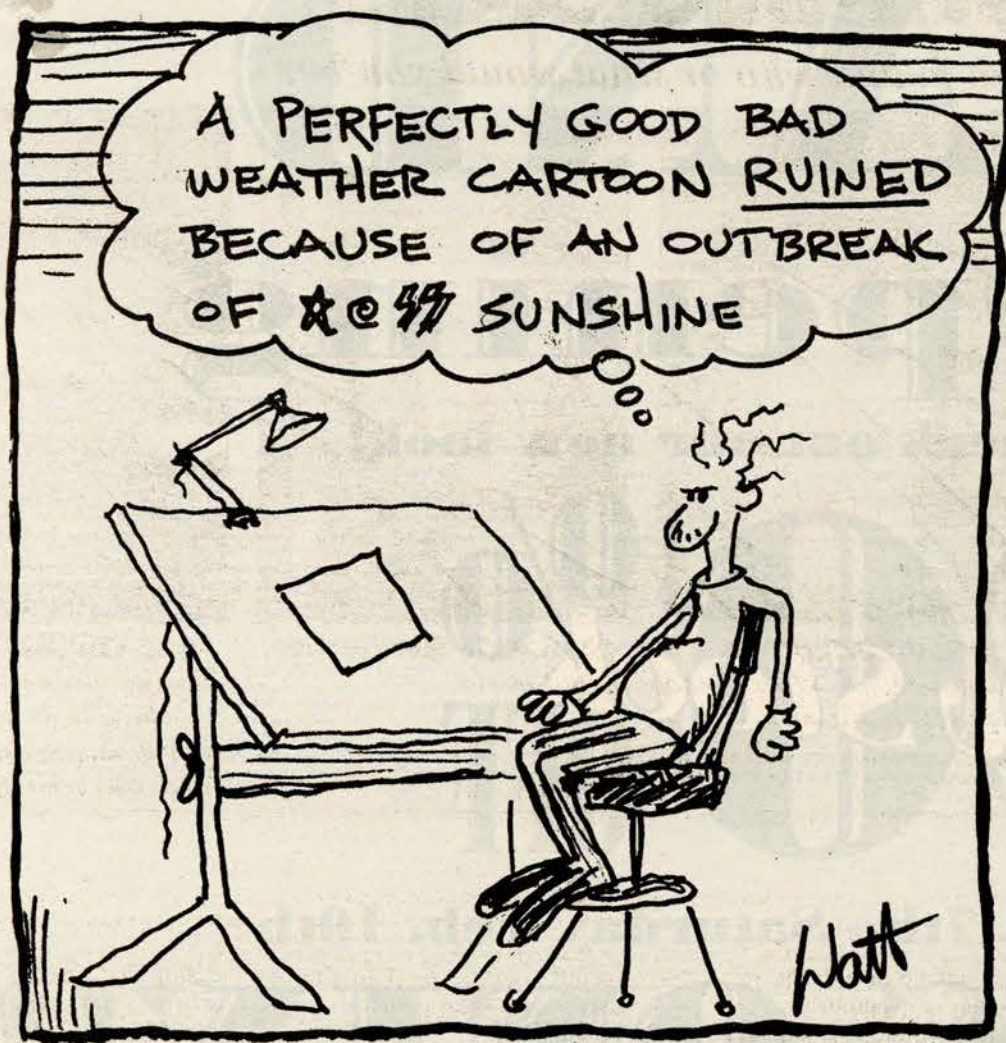 A PERFECTLY GOOD BAD
WEATHER CARTOON RUINED
BECAUSE OF AN OUTBREAK
OF ☆@⚡⚡ SUNSHINE
Watt